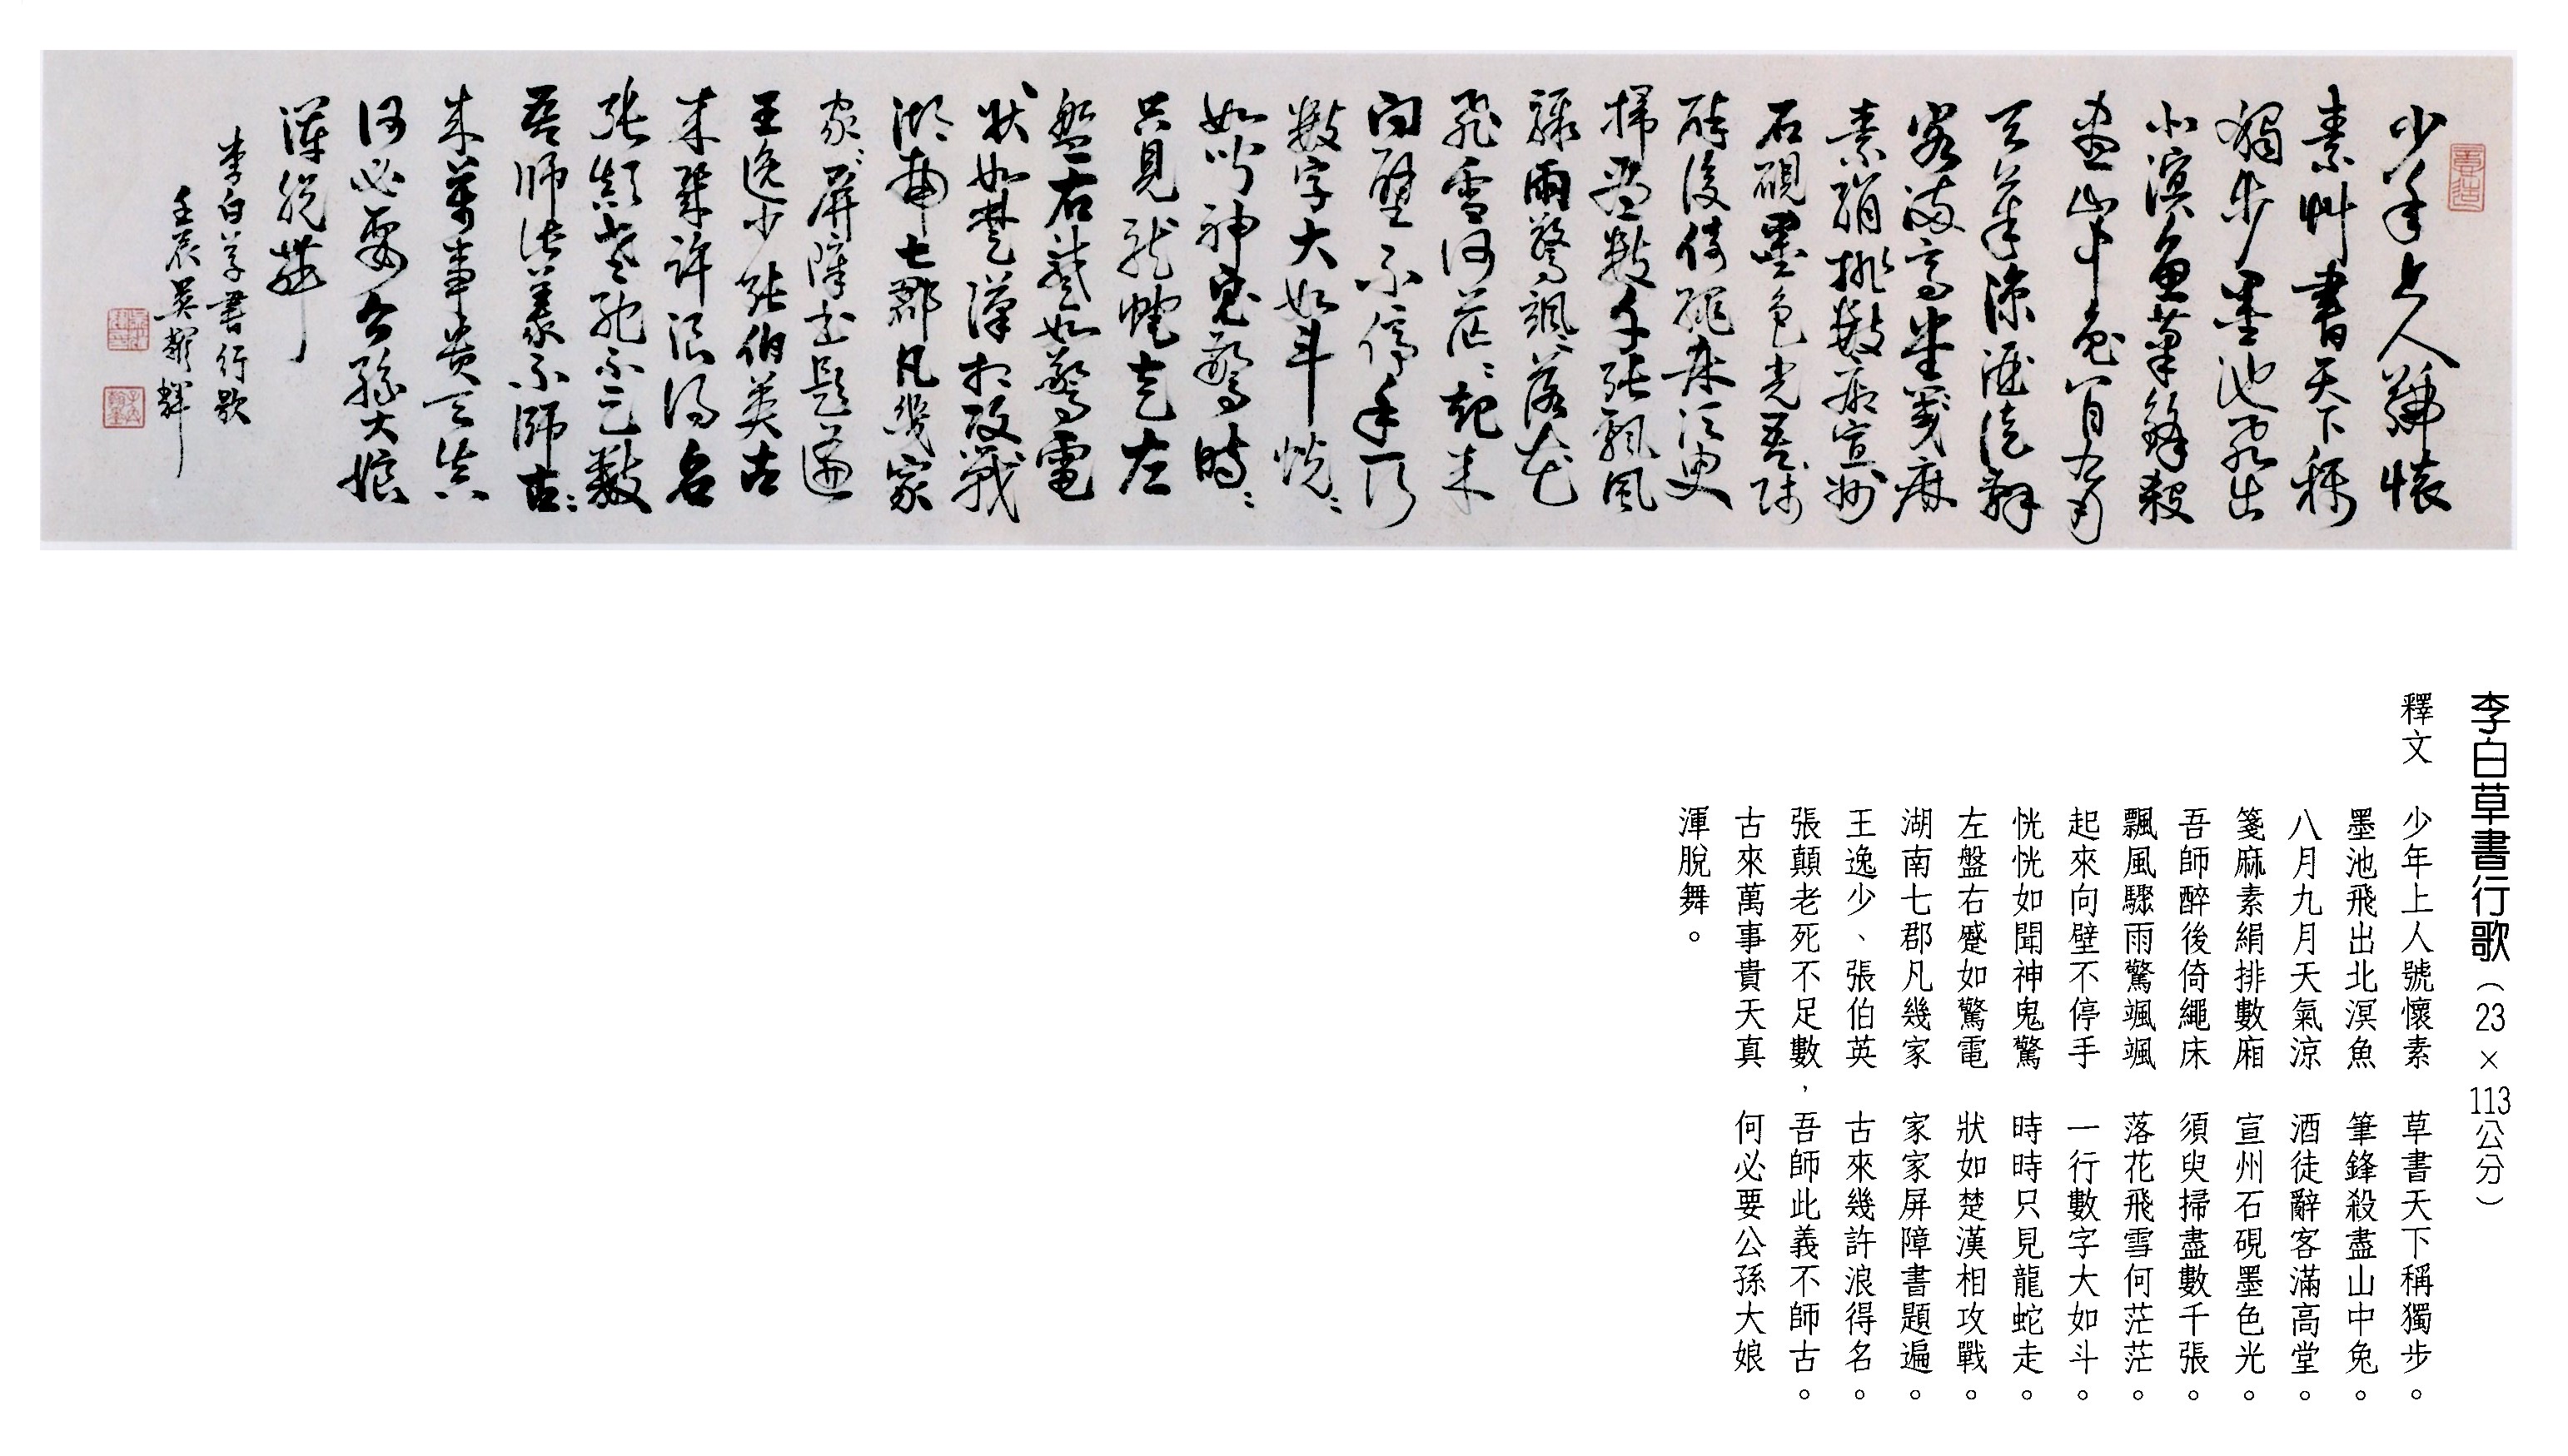 少年上人號懷
素艸書天下稱
獨步墨池飛出
北溟魚筆鋒殺
盡山中兔八月九月
天氣涼酒徒辭
客滿高堂箋麻
素絹排數廂宣州
石硯墨色光吾師
醉後倚繩床須臾
掃盡數千張飄風
驟雨驚颯颯落花
飛雪何茫茫起來
向壁不停手一行
數字大如斗恍恍
如聞神鬼驚時時
只見龍蛇走左
盤右蹙如驚電
狀如楚漢相攻戰
湖南七郡凡幾家
家家屏障書題遍
王逸少張伯英古
來幾許浪得名
張顛老死不足數
吾師此義不師古古
來萬事貴天真
何必要公孫大娘
渾脫舞
李白草書行歌
壬辰吳輝
李白草書行歌（23×113公分）
釋文 少年上人號懷素 草書天下稱獨步。
墨池飛出北溟魚 筆鋒殺盡山中兔。
八月九月天氣涼 酒徒辭客滿高堂。
箋麻素絹排數廂 宣州石硯墨色光。
吾師醉後倚繩床 須臾掃盡數千張。
飄風驟雨驚颯颯 落花飛雪何茫茫。
起來向壁不停手 一行數字大如斗。
恍恍如聞神鬼驚 時時只見龍蛇走。
左盤右蹙如驚電 狀如楚漢相攻戰。
湖南七郡凡幾家 家家屏障書題遍。
王逸少、張伯英 古來幾許浪得名。
張顛老死不足數，吾師此義不師古。
古來萬事貴天真 何必要公孫大娘
渾脫舞。